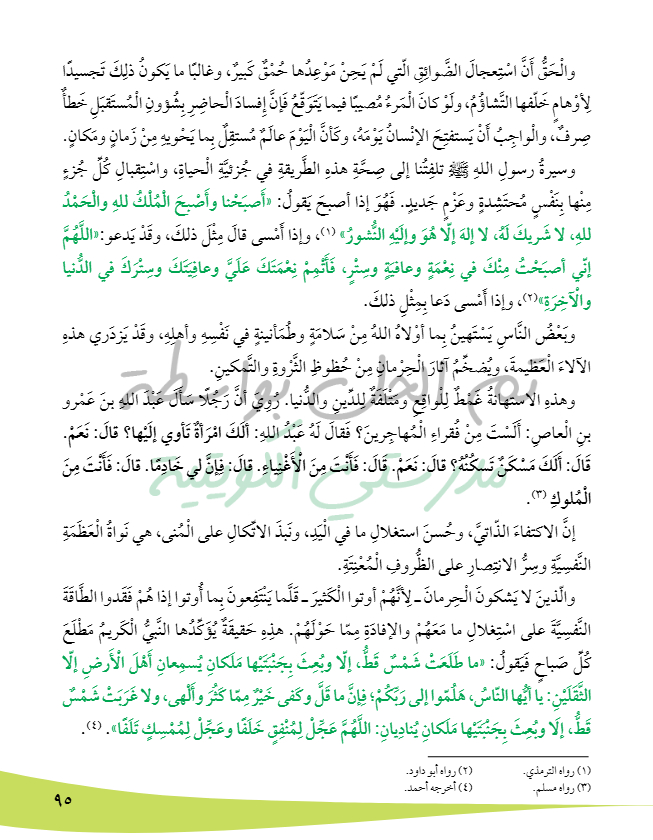 والْحَقُّ أَنَّ اسْتِعجالَ الضَّوائِقِ الّتي لَمْ يَحِنْ مَوْعِدُها حُمْقٌ كَبيرٌ، وغالبًا ما يَكونُ ذلِكَ تَجسيدًا
لِأوْهامٍ خَلّفَها التَّشاؤُمُ، ولَوْ كانَ المَرءُ مُصيبًا فيما يَتَوَقّعُ فَإنَّ إفسادَ الْحاضِرِ بِشُؤونِ الْمُستَقبَلِ خَطأٌ
صِرفٌ، والْواجِبُ أَنْ يَستفتِحَ الإنْسانُ يَوْمَهُ، وكَأنَّ الْيَوْمَ عالَمٌ مُستقِلٌ بِما يَحْويهِ مِنْ زَمانٍ ومَكانٍ.
وسيرةُ رسولِ اللهِ ﷺ تلفِتُنا إلى صِحَّةِ هذهِ الطَّريقةِ في جُزئيَّةِ الْحياةِ، واسْتِقبالِ كُلِّ جُزءٍ
مِنْها بِنَفْسٍ مُحتَشِدةٍ وعَزْمٍ جَديدٍ. فَهُوَ إذا أصبحَ يَقولُ: «أَصبَحْنا وأَصْبحَ الْمُلْكُ للهِ والْحَمْدُ
للهِ، لا شَريكَ لَهُ، لا إلهَ إلّا هُوَ وإلَيْهِ النُّشورُ» (١)، وإذا أَمْسى قالَ مِثْلَ ذلكَ، وقَدْ يَدعو:«اللَّهُمَّ
إنّي أصبَحْتُ مِنْكَ في نِعْمَةٍ وعافيَةٍ وسِتْرٍ، فَأَتْمِمْ نِعْمَتَكَ عَلَيَّ وعافِيَتَكَ وسِتْرَكَ في الدُّنيا
والْآخِرَةِ»(٢)، وإذا أَمْسى دَعا بِمِثْلِ ذلكَ.
وبَعْضُ النَّاسِ يَسْتَهينُ بِما أوْلاهُ اللهُ مِنْ سَلامَةٍ وطُمَأنينةٍ في نَفْسِهِ وأهلِهِ، وقَدْ يَزدَري هذهِ
الآلاءَ الْعَظيمةَ، ويُضخِّمُ آثارَ الْحِرْمانِ مِنْ حُظوظِ الثَّروةِ والتَّمكينِ.
تم التحميل بواسطة
وهذهِ الاستهانةُ غَمْطٌ لِلْواقِعِ ومَتْلَفَةٌ لِلدِّينِ والدُّنيا. رُوِيَ أنَّ رَجُلًا سَأَلَ عَبْدَ اللهِ بنَ عَمْرو
بنِ الْعاصِ: أَلَسْتَ مِنْ فُقراءِ الْمُهاجرينَ؟ فَقالَ لَهُ عَبْدُ اللهِ: أَلَكَ امْرَأةٌ تَأوي إلَيْها؟ قالَ: نَعَمْ.
قالَ: أَلَكَ مَسْكَنٌ تَسكُنُهُ؟ قالَ: نَعَمْ. قالَ: فَأَنْتَ مِنَ الْأَغْنِياءِ. قالَ: فَإنَّ لي خَادِمًا. قالَ: فَأَنْتَ مِنَ
مدرستي الكويتية
الْمُلوكِ (٣).
إنَّ الاكتفاءَ الذّاتيَّ، وحُسنَ استغلالِ ما في الْيَدِ، ونَبذَ الاتّكالِ على الْمُنى، هيَ نَواةُ الْعَظَمةِ
النَّفسِيَّةِ وسِرُّ الانتِصارِ على الظُّروفِ الْمُعْنِتَةِ.
والّذينَ لا يَشكونَ الْحِرمانَ ـ لِأنَّهُمْ أوتوا الْكَثيرَ ـ قَلَّما يَنْتَفِعونَ بِما أُوتوا إذا هُمْ فَقَدوا الطّاقَةَ
النَّفْسِيَّةَ على اسْتِغلالِ ما مَعَهُمْ والإفادَةِ مِمّا حَوْلَهُمْ. هذهِ حَقيقَةٌ يُؤكِّدُها النَّبيُّ الْكَريمُ مَطْلَعَ
كُلِّ صَباحٍ فَيَقولُ: «ما طَلَعَتْ شَمْسٌ قَطُّ، إلّا وبُعِثَ بِجَنْبَتَيْها مَلَكانِ يُسمِعانِ أَهْلَ الْأَرضِ إلّا
الثَّقَلَيْنِ: يا أيُّها النّاسُ، هَلُمّوا إلى رَبِّكُمْ؛ فَإنَّ ما قَلَّ وكَفى خَيْرٌ مِمّا كَثُرَ وألْهى، ولا غَرَبَتْ شَمْسٌ
قَطُّ، إلا وبُعِثَ بِجَنْبَتَيْها مَلَكانِ يُنادِيانِ: اللَّهُمَّ عَجِّلْ لِمُنْفِقٍ خَلَفًا وعَجِّلْ لِمُمْسِكٍ تَلَفًا». (٤).
(١) رواه الترمذي. (٢) رواه أبو داود.
(٣) رواه مسلم. (٤) أخرجه أحمد.
٩٥